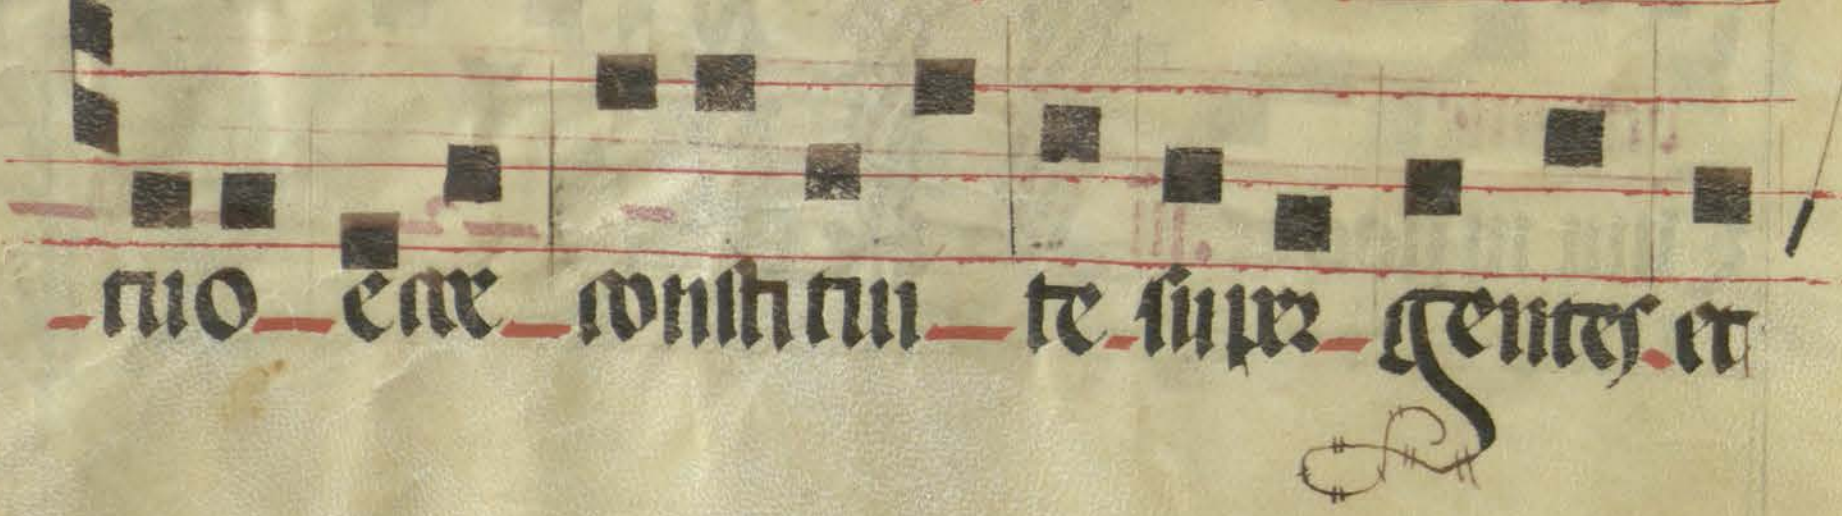 tuo ecce constitui te super gentes et